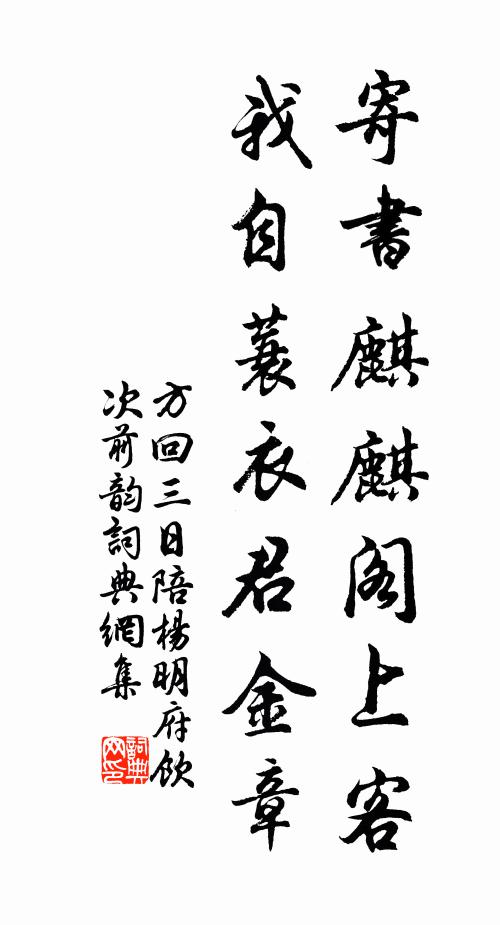 寄書麒麒閣上客
我自蓑衣君金章
方回三日陪楊明府飲
次前韵詞典網集
詞典
网印